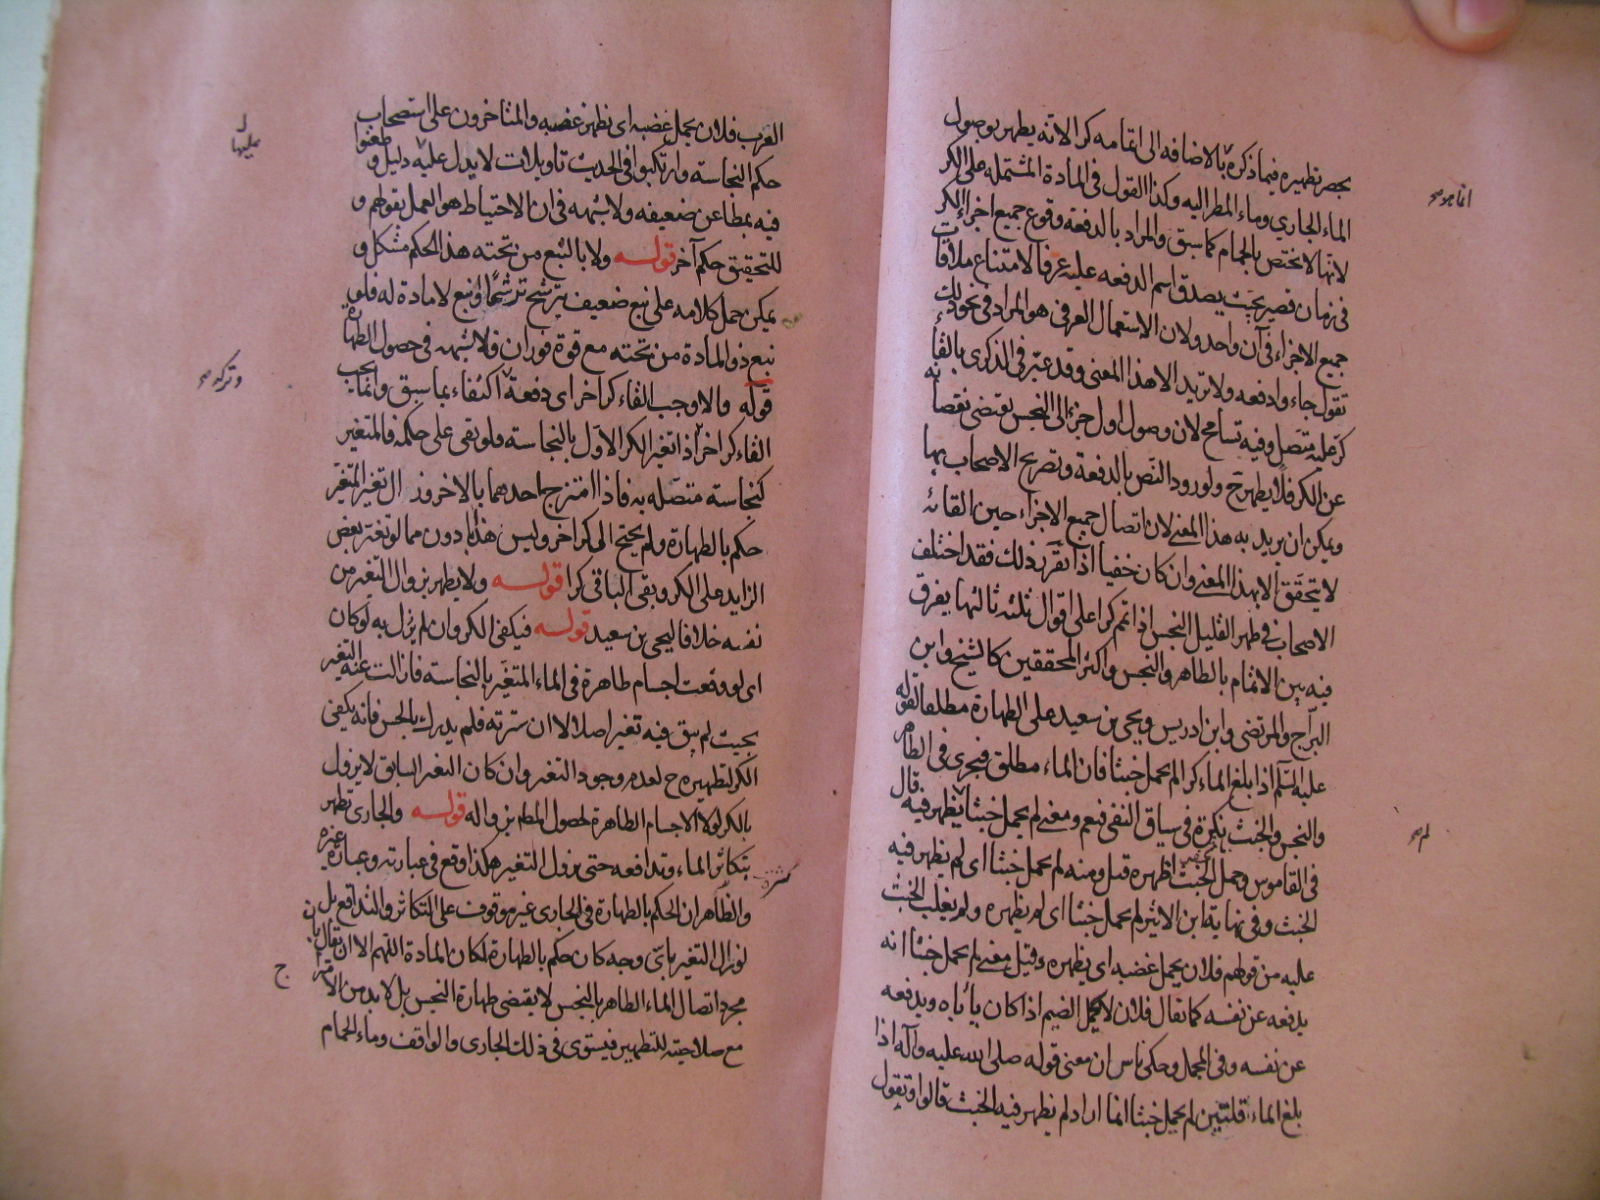 بحصر تطهيره فيما ذكره بالاضافه الى اتمامه كرا لا انه يطهر بوصول
الماء الجاري وماء المطر اليه وكذا القول في المادة المشتمله على الكر
لانها لا تختص بالحمام كما سبق والمراد بالدفعة وقوع جميع اجزاء الكر
في زمان قصير بحيث يصدق اسم الدفعه عليه عرفا لامتناع ملاقات
جميع الاجزاء في آن واحد ولان الاستعمال العرفي هو المراد في نحو ذلك
تقول جاءوا دفعه ولا تريد الا هذا المعنى وقد عبر في الذكرى بالقاء
كر عليه متصل وفيه تسامح لان وصول اول جزء الى النجس يقتضي نقصانه
عن الكر فلا يطهر ح ولورود النص بالدفعة وتصريح الاصحاب بها
ويمكن ان يريد به هذا المعنى لان اتصال جميع الاجزاء حين القائه
لا يتحقق الا بهذا المعنى وان كان خفيا اذا تقرر ذلك فقد اختلف
الاصحاب في طهر القليل النجس اذا تمم كرا على اقوال ثلثه ثالثها يفرق
فيه بين الاتمام بالطاهر والنجس واكثر المحققين كالشيخ وابن
البراج والمرتضى وابن ادريس ويحيى بن سعيد على الطهارة مطلقا لقوله
عليه السلم اذا بلغ الماء كرا لم يحمل خبثا فان الماء مطلق فيجري في الطاهر
والنجس والخبث نكرة في سياق النفي فيعم ومعنى لم يحمل خبثا لم يظهر فيه قال
في القاموس وحمل الخبث اظهره قيل ومنه لم يحمل خبثا اى لم يظهر فيه
الخبث وفي نهاية ابن الاثير لم يحمل خبثا اى لم يظهره ولم يغلب الخبث
عليه من قولهم فلان يحمل غضبه اى يظهره وقيل معنى لم يحمل خبثا انه
يدفعه عن نفسه كما يقال فلان لا يحمل الضيم اذا كان ياباه ويدفعه
عن نفسه وفي المجمل وحكى ناس ان معنى قوله صلى الله عليه وآله اذا
بلغ الماء قلتين لم يحمل خبثا انما اراد لم يظهر فيه الخبث قالوا وتقول
العرب فلان يحمل غضبه اى يظهر غضبه والمتاخرون على استصحاب
حكم النجاسة وارتكبوا في الحديث تاويلات لا يدل عليها دليل وطعنوا
فيه بمطاعن ضعيفه ولا شبهه في ان الاحتياط هو العمل بقولهم و
للتحقيق حكم آخر قوله ولا بالنبع من تحته هذا الحكم مشكل و
يمكن حمل كلامه على نبع ضعيف يترشح ترشحا او نبع لا مادة له فلو
نبع ذو المادة من تحته مع قوة فوران فلا شبهه في حصول الطهارة
قوله والا وجب القاء كر اخر اى دفعة وتركه اكتفاء بما سبق وانما يجب
القاء كر اخر اذا تغير الكر الاول بالنجاسة فلو بقى على حكمه فالمتغير
كنجاسة متصله به فاذا امتزج احدهما بالاخر وزال تغير المتغير
حكم بالطهارة ولم يحتج الى كر اخر وليس هذا بادون مما لو تغير بعض
الزايد على الكر وبقى الباقي كرا قوله ولا يطهر بزوال التغير من
نفسه خلافا ليحيى بن سعيد قوله فيكفي الكر وان لم يزل به لو كان
اى لو وقعت اجسام طاهرة في الماء المتغير بالنجاسة فازالت عنه التغير
بحيث لم يبق فيه تغير اصلا لا ان سترته فلم يدرك بالحس فانه يكفي
الكر لتطهيره ح لعدم وجود التغير وان كان التغير السابق لا يزول
بالكر لولا الاجسام الطاهرة لحصول المطهر بزواله قوله والجارى يطهر
بتكاثر الماء وتدافعه حتى يزول التغير هكذا وقع في عبارته وعبارة غيره
والظاهر ان الحكم بالطهارة في الجارى غير موقوف على التكاثر والتدافع بل
لو زال التغير باى وجه كان حكم بالطهارة لمكان المادة اللهم الا ان يقال بان
مجرد اتصال الماء الطاهر بالنجس لا يقتضي طهارة النجس بل لا بد من الامتزاج
مع صلاحيته للتطهير فيستوى في ذلك الجارى والواقف وماء الحمام